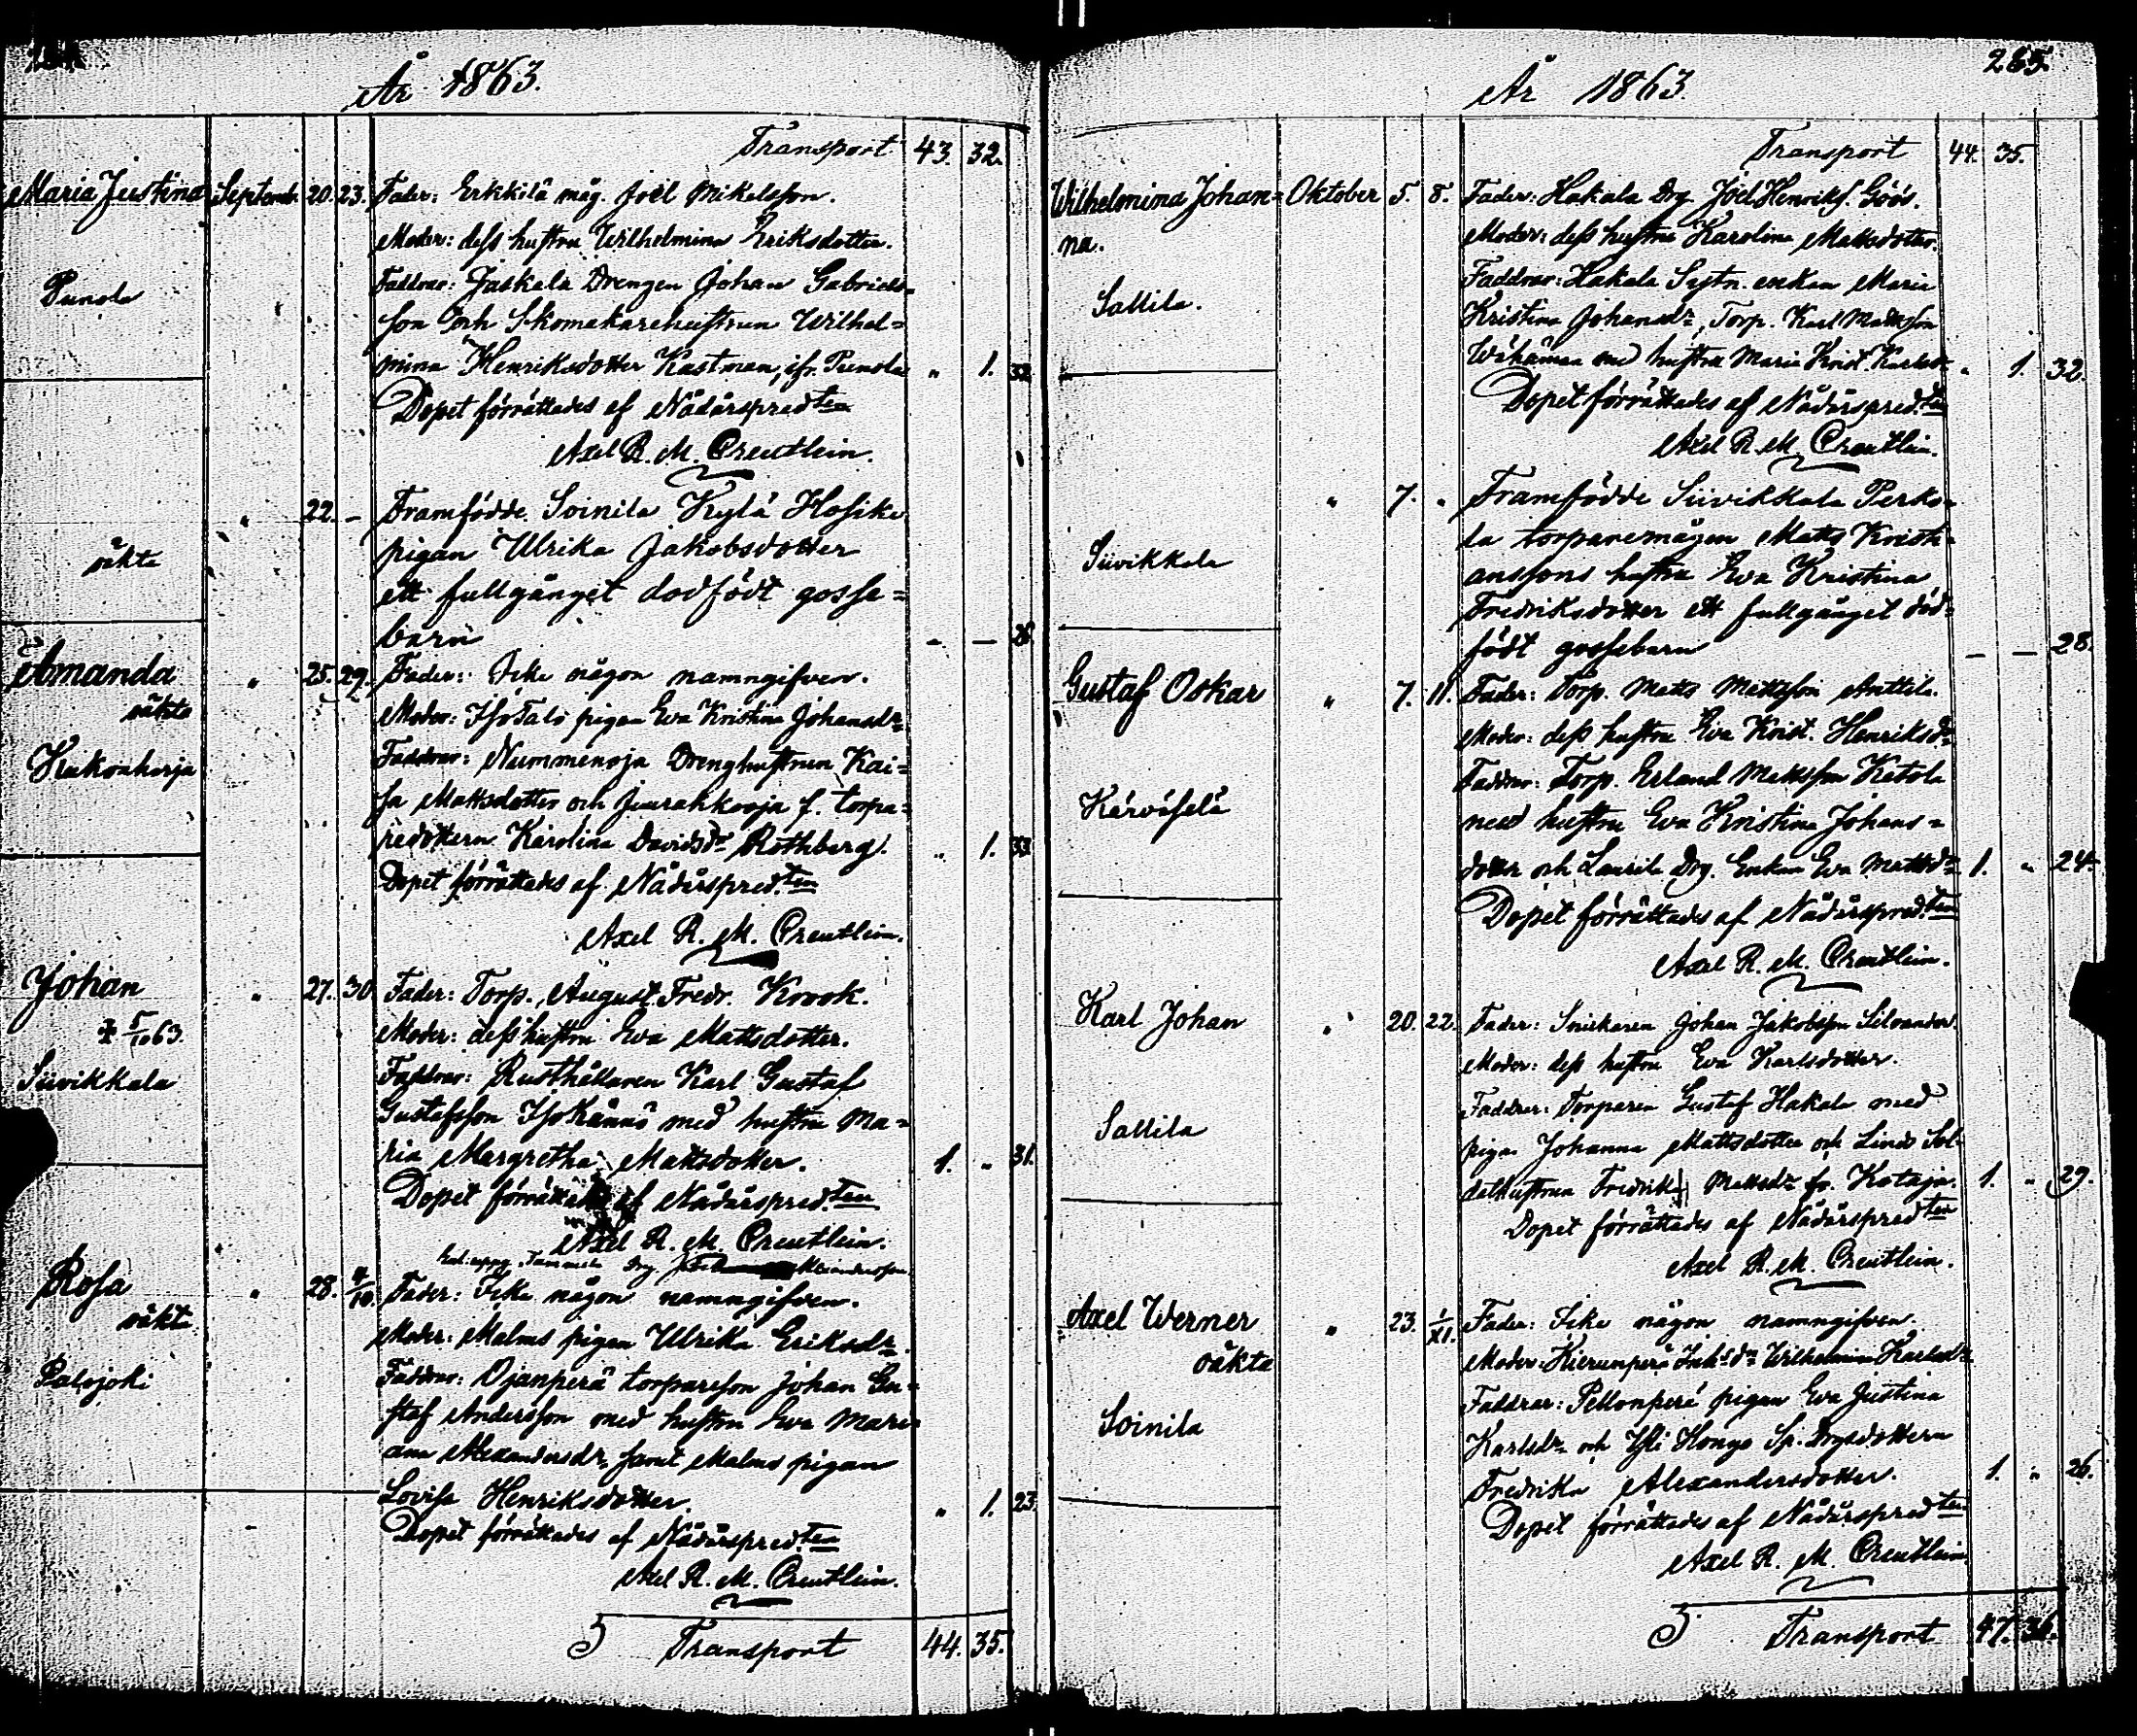 År 1863.
Transport 43. 32.
Maria Justina Septemb. 20. 23. Fader: Erkkilä måg. Joel Mikelsson.
Moder: dess hustru Wilhelmina Eriksdotter.
Punola
Faddrar: Jaskala Drengen Johan Gabriels=
son och Skomakarehustrun Wilhel=
mina Henriksdotter Kastman, ifr. Punola " 1. 32.
Dopet förrättades af Nådårspred.ten
Axel R. M. Creutlein.
" 22. – Framfödde Soinila Kylä Hosike
pigan Ulrika Jakobsdotter
oäkta
ett fullgånget dödfödt gosse=
barn – – 26.
Amanda " 25. 29. Fader: Icke någon namngifven.
oäkta
Moder: Iso Talo pigan Eva Kristina Johansdr
Kukonharja
Faddrar: Nummenoja Drenghustrun Kai=
sa Mattsdotter och Juurahkooja f. torpa=
redottern Karolina Davidsdr Rothberg. " 1. 33.
Dopet förrättades af Nådårspred.ten
Axel R. M. Creutlein.
Johan " 27. 30. Fader: Torp. August Fredr. Krook.
† 5/10 63.
Moder: dess hustru Eva Mattsdotter.
Siivikkala
Faddrar: Rusthållaren Karl Gustaf
Gustafsson Isokännö med hustru Ma=
ria Margretha Mattsdotter. 1. " 31.
Dopet förrättades af Nådårspred.ten
Axel R. M. Creutlein.
Drg. Alexandersson
Rosa " 28. 4/10. Fader: Icke någon namngifven.
oäkta
Moder: Malms pigan Ulrika Eriksdr.
Palojoki
Faddrar: Ojanperä torpareson Johan Gu=
staf Andersson med hustru Eva Mari=
ana Alexandersdr. samt Malms pigan
Lovisa Henriksdotter. " 1. 23.
Dopet förrättades af Nådårspred.ten
Axel R. M. Creutlein.
5 Transport 44. 35.
265.
År 1863.
Transport 44. 35.
Wilhelmina Johan= Oktober 5. 8. Fader: Hakala Drg. Joel Henrikss. Göös.
na.
Moder: dess hustru Karolina Mattsdotter.
Sallila.
Faddrar: Hakala Sytn. enkan Maria
Kristina Johansdr, Torp. Karl Mattsson
Wähämaa med hustru Maria Krist. Karlsdr. " 1. 32.
Dopet förrättades af Nådårspred.ten
Axel R. M. Creutlein.
" 7. " Framfödde Siivikkala Perko=
la torparemågen Matts Kristi=
Siivikkala
anssons hustru Eva Kristina
Fredriksdotter ett fullgånget död=
födt gossebarn – – 28.
Gustaf Oskar " 7. 11. Fader: Torp. Matts Mattsson Anttila.
Moder: dess hustru Eva Krist. Henriksdr
Faddrar: Torp. Erland Mattsson Ketola
Kärväselä
med hustru Eva Kristina Johans=
dotter och Laurila Drg. Enkan Eva Mattsdr 1. " 24.
Dopet förrättades af Nådårspred.ten
Axel R. M. Creutlein.
Karl Johan " 20. 22. Fader: Snickaren Johan Jakobsson Silvander.
Moder: dess hustru Eva Karlsdotter.
Sallila
Faddrar: Torparen Gustaf Hakala med
pigan Johanna Mattsdotter och Linds Sol=
dathustrun Fredrika Mattsdr fr. Kotaja. 1. " 29.
Dopet förrättades af Nådårspred.ten
Axel R. M. Creutlein.
Axel Werner " 23. 1/XI. Fader: Icke någon namngifven.
oäkta
Moder: Kierunperä Inh.dr Wilhelmina Karlsdr
Soinila
Faddrar: Pellonperä pigan Eva Justina
Karlsdr. och Yli Hongo Sp. Drgsdottern
Fredrika Alexandersdotter. 1. " 26.
Dopet förrättades af Nådårspred.ten
Axel R. M. Creutlein.
5 Transport 47. 36.